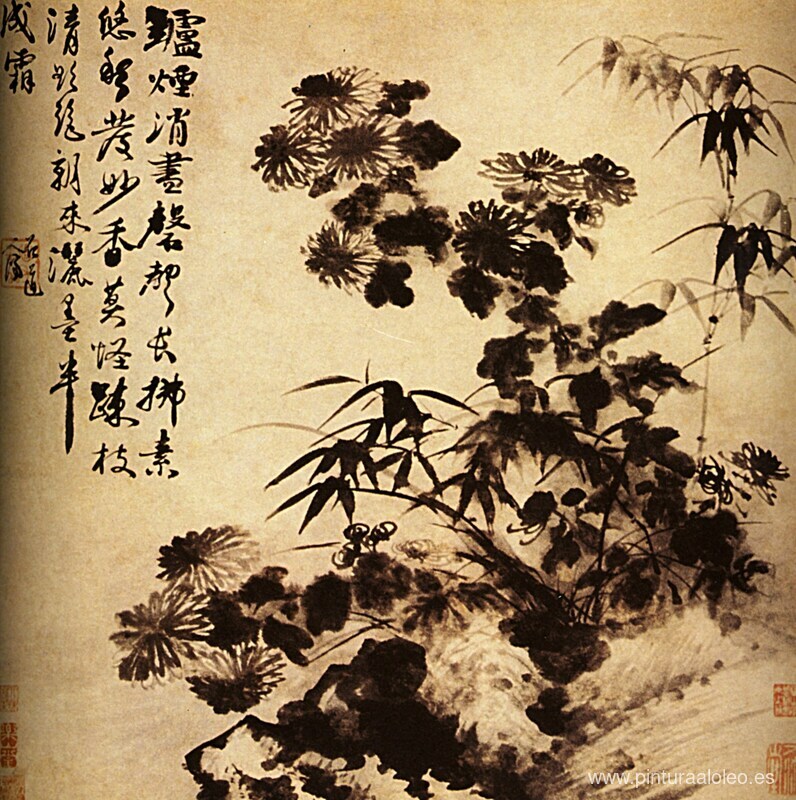 鑪煙消晝磬聲長拂素
悠然發妙香莫怪疎枝
清影 朝來灑墨半
成霜
石道人
www.pinturaaloleo.es